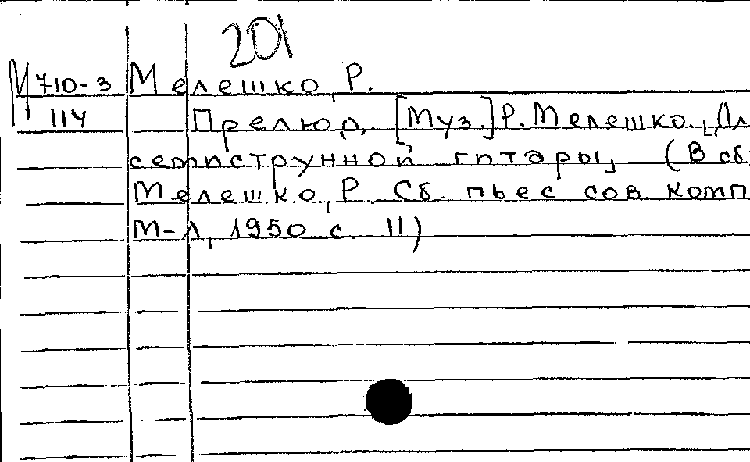 201
М 710-3 Мелешко, Р.
114 Прелюд, [Муз.] Р. Мелешко, [Дл
семиструнной гитары, (В сб.
Мелешко, Р. Сб. пьес сов комп
М-Л, 1950 с. 11)